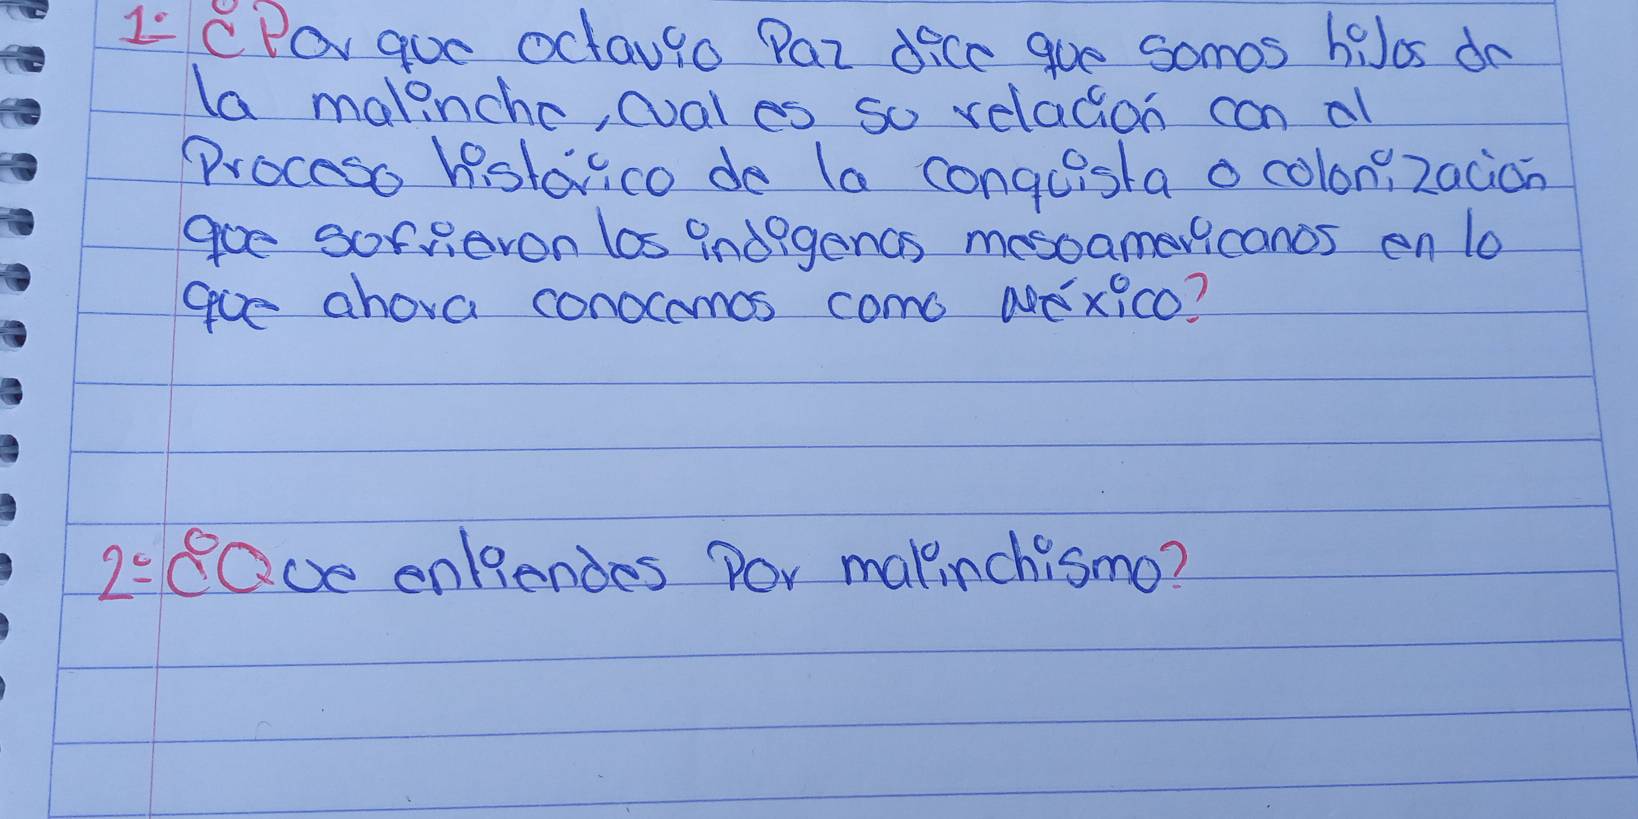 1- ¿Por que octavio Paz dice que somos hijos de
la malinche, cual es su relación con al
Proceso histórico de la conquista o colonización
que sufrieron los indigenas mesoamericanos en lo
que ahora conocemos como México?
2- ¿Que entiendes Por malinchismo?